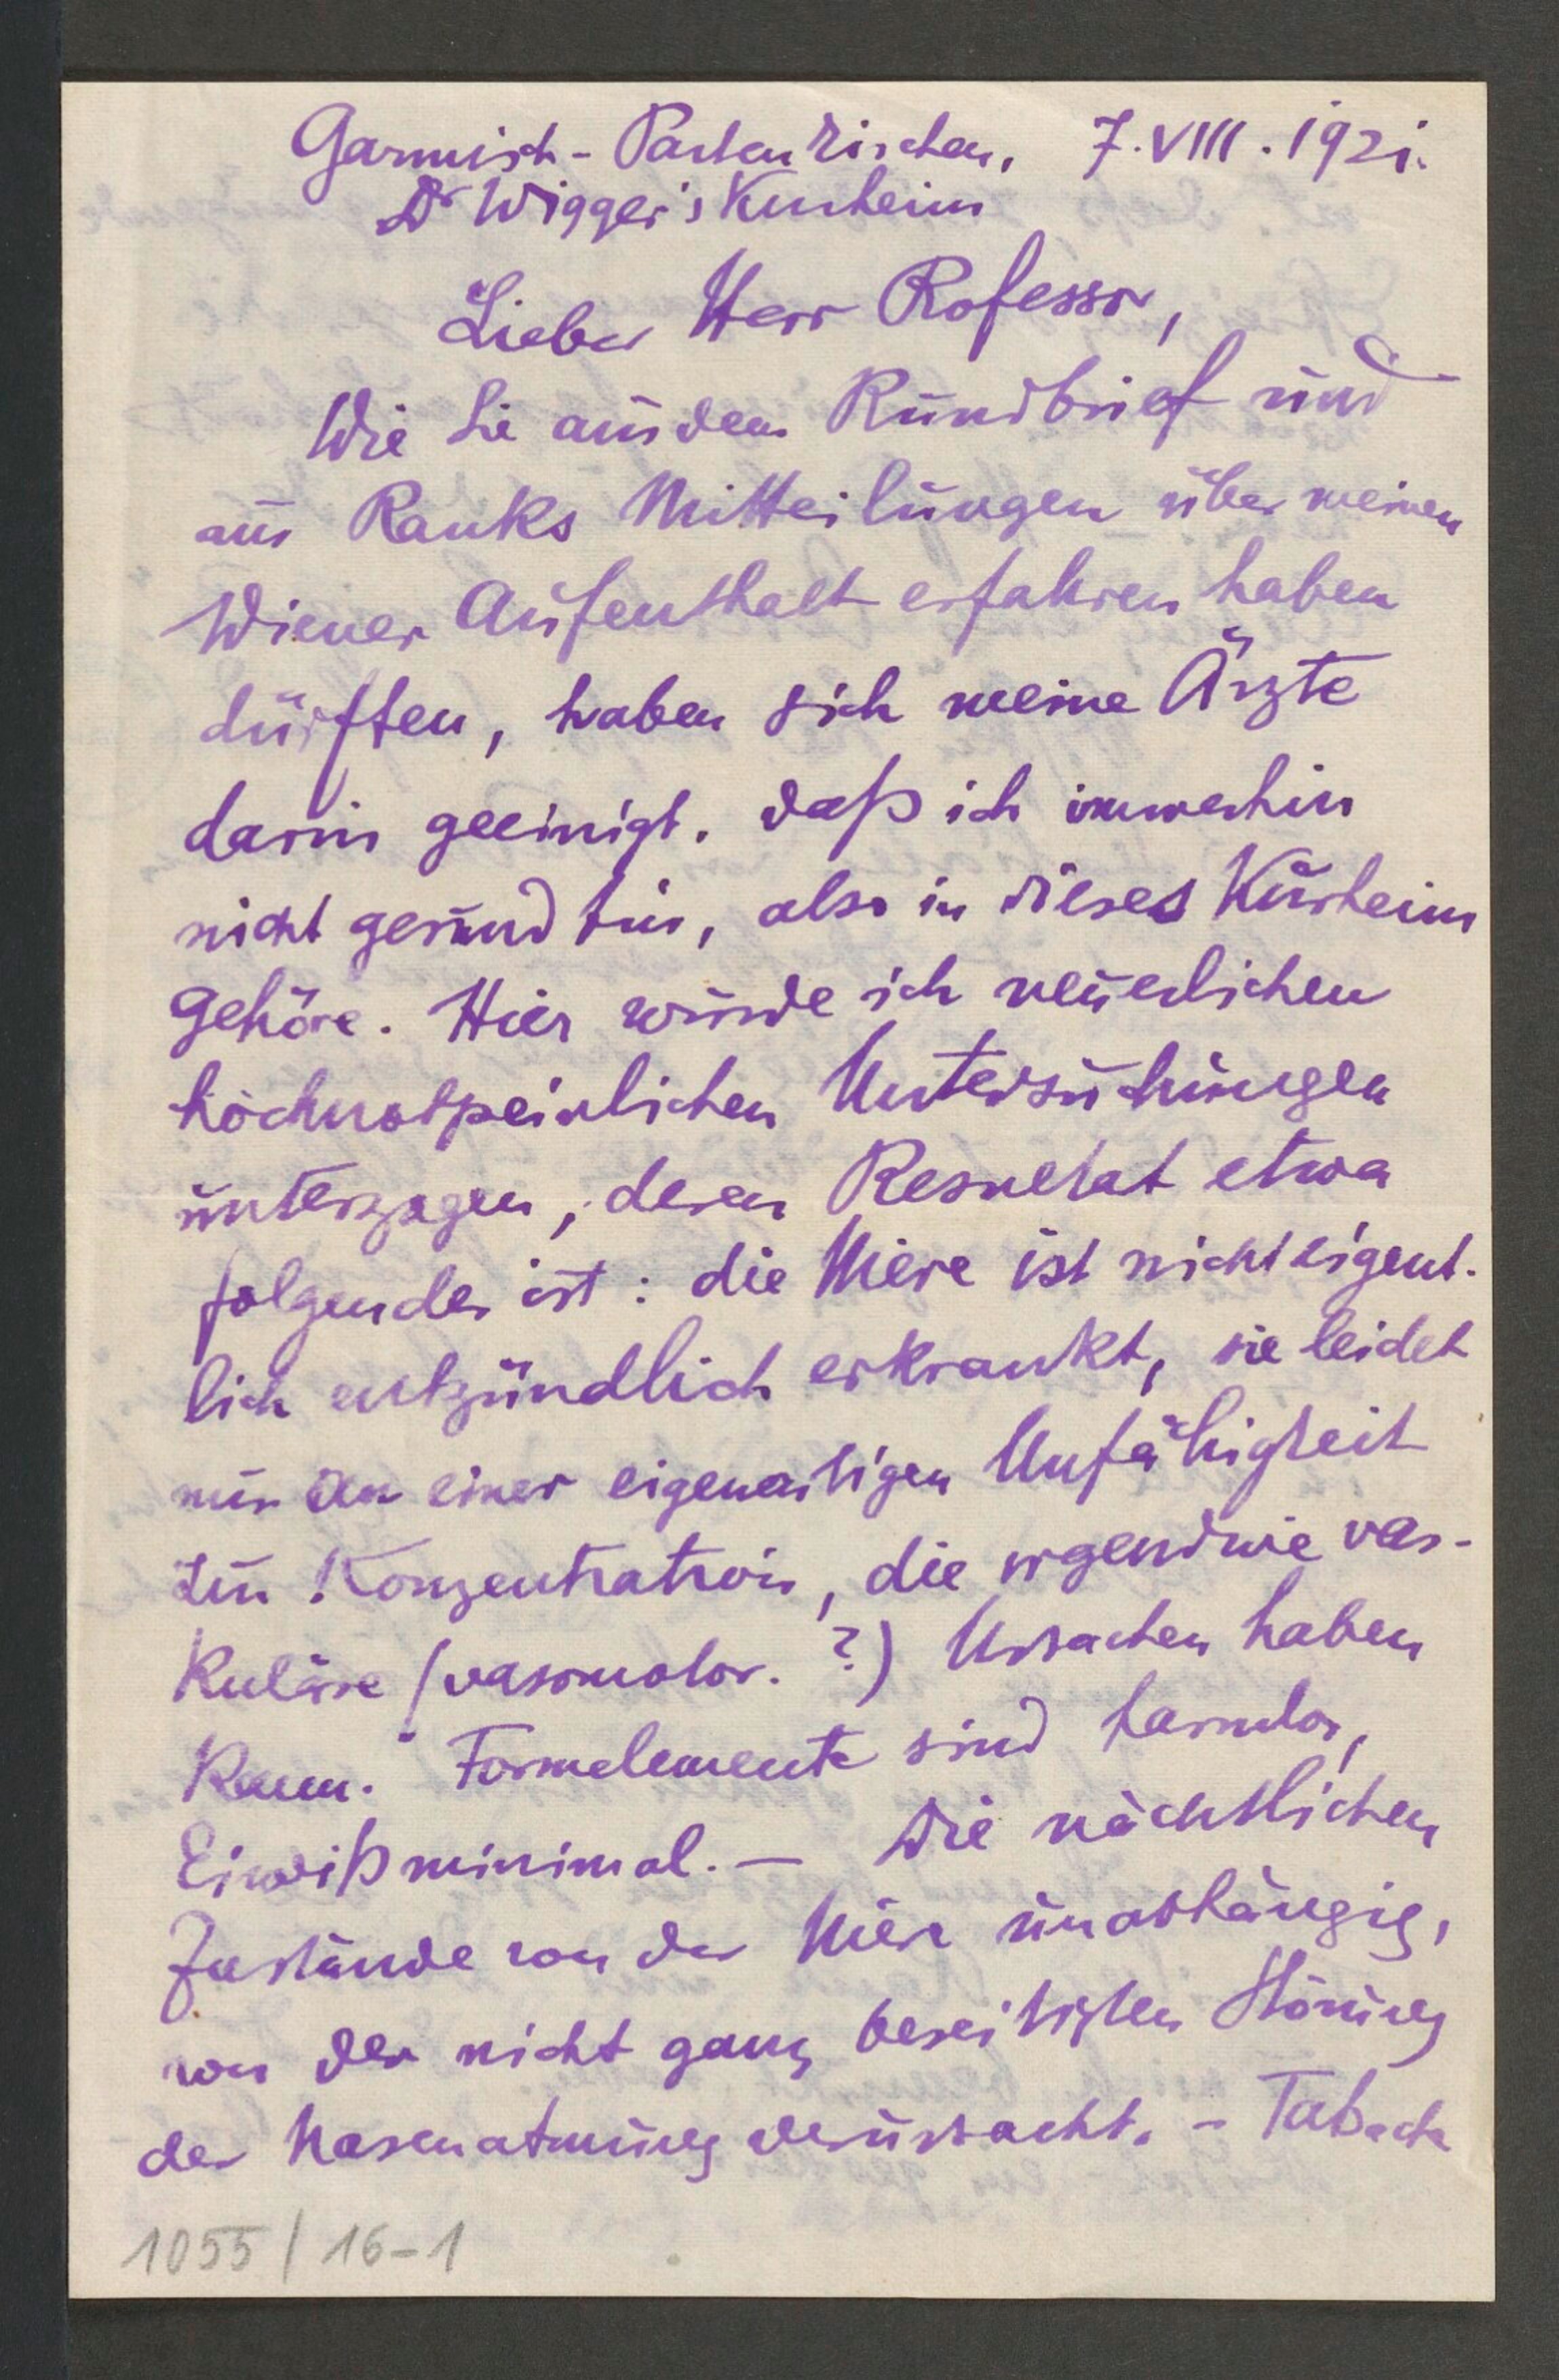 Garmisch-Partenkirchen, 7.VIII.1921.
Dr Wigger's Kurheim
Lieber Herr Professor,
Wie Sie aus dem Rundbrief und
aus Ranks Mitteilungen über meinen
Wiener Aufenthalt erfahren haben
dürften, haben sich meine Ärzte
darin geeinigt, daß ich immerhin
nicht gesund bin, also in dieses Kurheim
gehöre. Hier wurde ich neuerlichen
hochnotpeinlichen Untersuchungen
unterzogen, deren Resultat etwa
folgendes ist: die Niere ist nicht eigent-
lich entzündlich erkrankt, sie leidet
nur an einer eigenartigen Unfähigkeit
zur Konzentration, die irgendwie vas-
kuläre (vasomotor. ?) Ursachen haben
kann. Formelemente sind harmlos,
Eiweiß minimal. — Die nächtlichen
Zustände von der Niere unabhängig,
von der nicht ganz beseitigten Störung
der Nasenatmung verursacht. - Tabak
1055 / 16-1